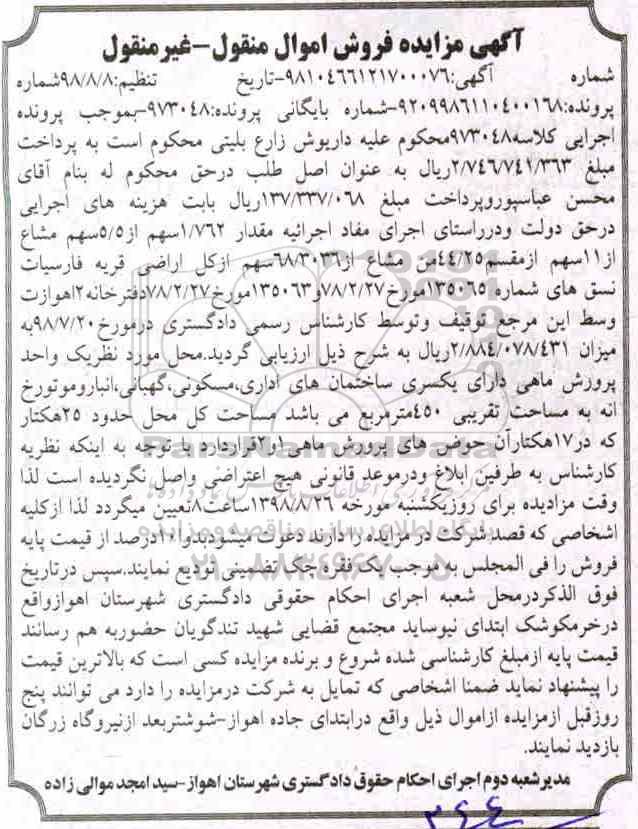 آگهی مزایده فروش اموال منقول-غیرمنقول
شماره آگهی:۹۸۱۰۴۶۶۱۲۱۷۰۰۰۷۶-تاریخ تنظیم:۹۸/۸/۸شماره
پرونده:۹۲۰۹۹۸۶۱۱۰۴۰۰۱۶۸-شماره بایگانی پرونده:۹۷۳۰۴۸-بموجب پرونده
اجرایی کلاسه۹۷۳۰۴۸محکوم علیه داریوش زارع بلیتی محکوم است به پرداخت
مبلغ ۲/۷۴۶/۷۴۱/۳۶۳ریال به عنوان اصل طلب درحق محکوم له بنام آقای
محسن عباسپوروپرداخت مبلغ ۱۳۷/۳۳۷/۰۶۸ریال بابت هزینه های اجرایی
درحق دولت ودرراستای اجرای مفاد اجرائیه مقدار ۱/۷۶۲سهم از۵/۵سهم مشاع
از۱۱سهم ازمقسم۴۴/۲۵من مشاع از۶۸/۳۰۳۶سهم ازکل اراضی قریه فارسیات
نسق های شماره ۱۳۵۰۶۵مورخ۷۸/۲/۲۷و۱۳۵۰۶۳مورخ۷۸/۲/۲۷دفترخانه۲اهوازت
وسط این مرجع توقیف وتوسط کارشناس رسمی دادگستری درمورخ۹۸/۷/۲۰به
میزان ۲/۸۸۴/۰۷۸/۴۳۱ریال به شرح ذیل ارزیابی گردید.محل مورد نظریک واحد
پرورش ماهی دارای یکسری ساختمان های اداری،مسکونی،گهبانی،انباروموتورخ
انه به مساحت تقریبی ۴۵۰مترمربع می باشد مساحت کل محل حدود ۲۵هکتار
که در۱۷هکتارآن حوض های پرورش ماهی او۲قراردارد باتوجه به اینکه نظریه
کارشناس به طرفین ابلاغ ودرموعد قانونی هیچ اعتراضی واصل نگردیده است لذا
وقت مزادیده برای روزیکشنبه مورخه ۱۳۹۸/۸/۲۶ساعت۸تعین میگردد لذا ازکلیه
اشخاصی که قصد شرکت در مزایده را دارند دعوت میشودبدوا۱۰درصد از قیمت پایه
فروش را فی المجلس به موجب یک فقره چک تضمینی تودیع نمایند.سپس درتاریخ
فوق الذکردرمحل شعبه اجرای احکام حقوقی دادگستری شهرستان اهوازواقع
درخرمکوشک ابتدای نیوساید مجتمع قضایی شهید تندگویان حضوربه هم رسانند
قیمت پایه ازمبلغ کارشناسی شده شروع و برنده مزایده کسی است که بالاترین قیمت
را پیشنهاد نماید ضمنا اشخاصی که تمایل به شرکت درمزایده را دارد می توانند پنج
روزقبل ازمزایده ازاموال ذیل واقع درابتدای جاده اهواز-شوشتربعد ازنیروگاه زرگان
بازدید نمایند.
مدیرشعبه دوم اجرای احکام حقوق دادگستری شهرستان اهواز-سید امجد موالی زاده